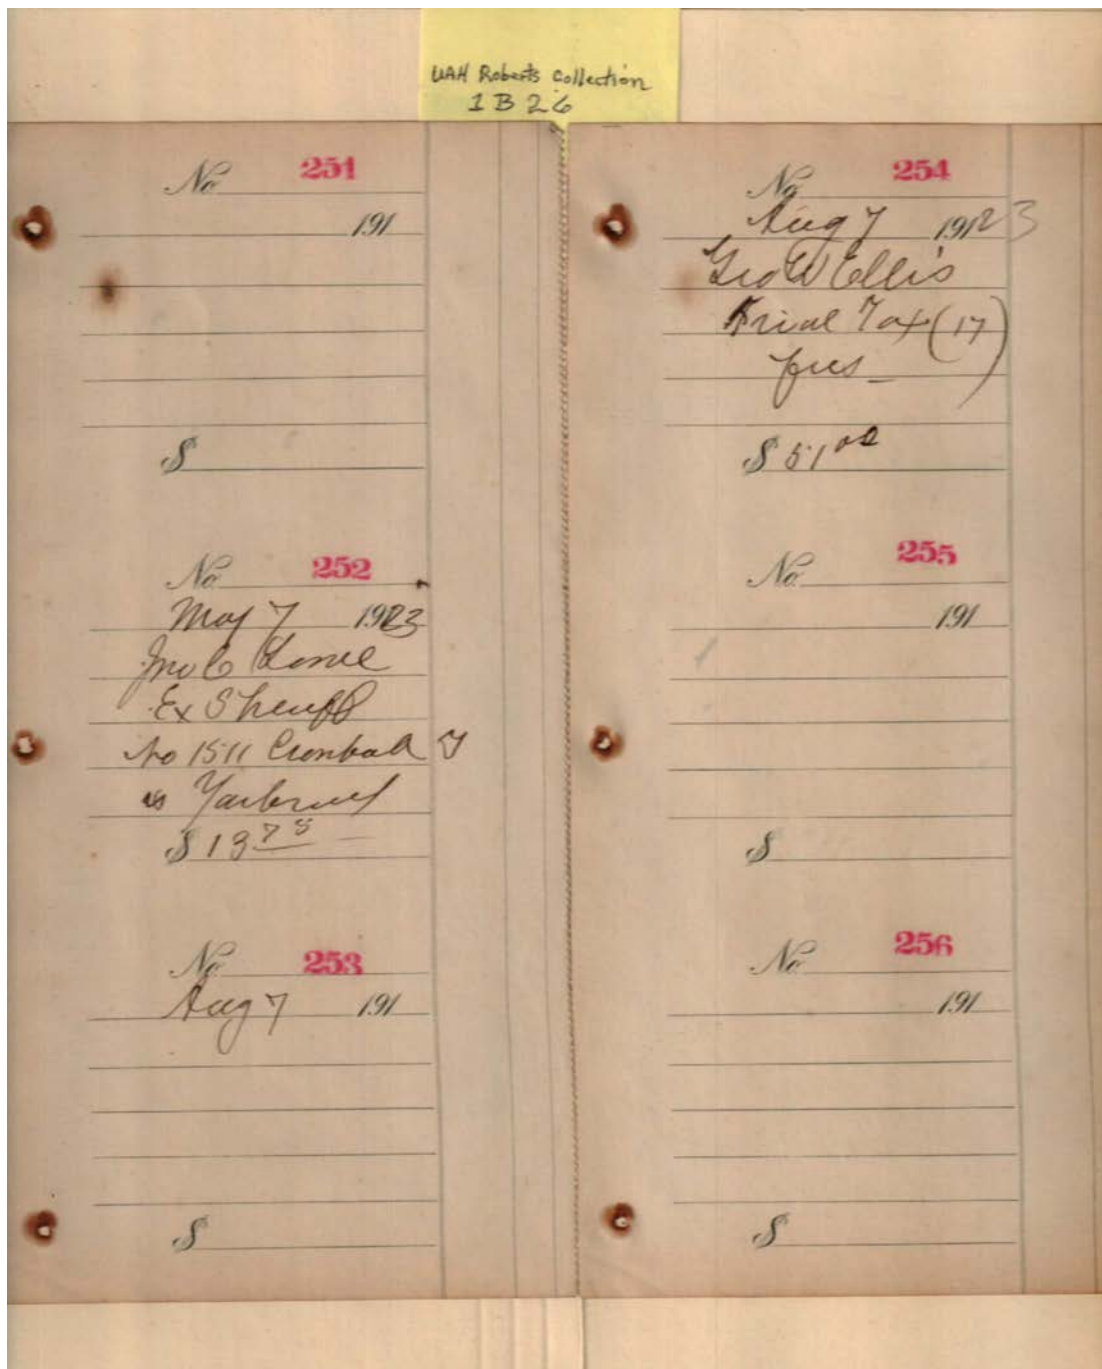 UAH Roberts Collection
1 B 26
No 251
191
$
No 252
May 7 1923
Jno C
Ex Sheriff
No 1511 &
vs
$ 13 75
No 253
Aug 7 191
$
No 254
Aug 7 1912 3
Geo W Ellis
Trial Tax (17)
$ 51 00
No 255
191
$
No 256
191
$